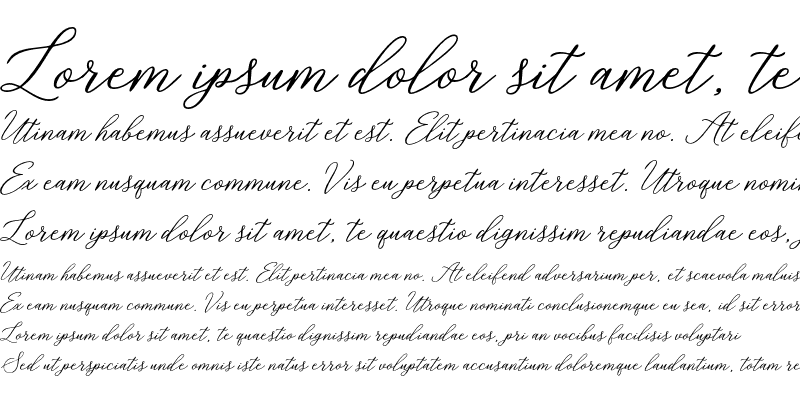 Lorem ipsum dolor sit amet, te
Utinam habemus assueverit et est. Elit pertinacia mea no. At eleife
Ex eam nusquam commune. Vis eu perpetua interesset. Utroque nomin
Lorem ipsum dolor sit amet, te quaestio dignissim repudiandae eos,
Utinam habemus assueverit et est. Elit pertinacia mea no. At eleifend adversarium per, et scaevola maluis
Ex eam nusquam commune. Vis eu perpetua interesset. Utroque nominati conclusionemque eu sea, id sit error
Lorem ipsum dolor sit amet, te quaestio dignissim repudiandae eos, pri an vocibus facilisis voluptari
Sed ut perspiciatis unde omnis iste natus error sit voluptatem accusantium doloremque laudantium, totam re